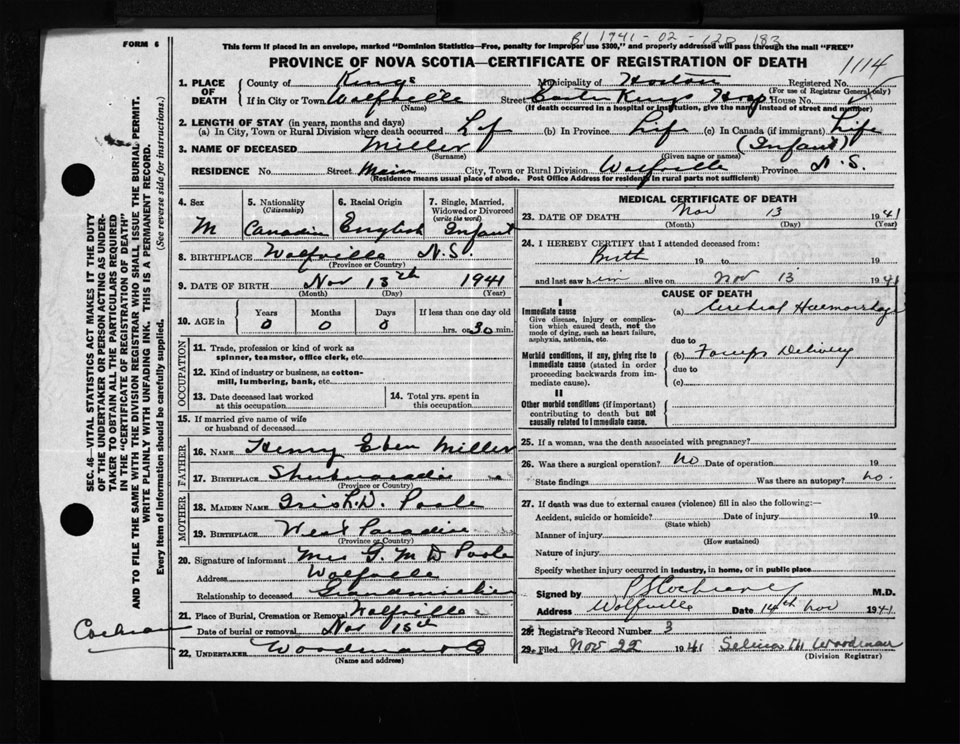 B1 1941-02-128 183
FORM 6
This form if placed in an envelope, marked "Dominion Statistics—Free, penalty for improper use $300," and properly addressed will pass through the mail "FREE"
PROVINCE OF NOVA SCOTIA—CERTIFICATE OF REGISTRATION OF DEATH
1114
1. PLACE OF DEATH
County of Kings Municipality of Horton Registered No.
(For use of Registrar General only)
If in City or Town Wolfville Street Eastern Kings Hosp House No.
(Name) (If death occurred in a hospital or institution, give the name instead of street and number)
2. LENGTH OF STAY (in years, months and days)
(a) In City, Town or Rural Division where death occurred Life (b) In Province Life (c) In Canada (if immigrant) Life
3. NAME OF DECEASED Miller (Infant)
(Surname) (Given name or names)
RESIDENCE No. Street Main City, Town or Rural Division Wolfville Province N.S.
(Residence means usual place of abode. Post Office Address for residents in rural parts not sufficient)
4. Sex M
5. Nationality (Citizenship) Canadian
6. Racial Origin English
7. Single, Married, Widowed or Divorced (write the word) Infant
8. BIRTHPLACE Wolfville N.S.
(Province or Country)
9. DATE OF BIRTH Nov 13th 1941
(Month) (Day) (Year)
10. AGE in Years Months Days If less than one day old
0 0 0 hrs. or 30 min.
OCCUPATION
11. Trade, profession or kind of work as spinner, teamster, office clerk, etc.
12. Kind of industry or business, as cotton-mill, lumbering, bank, etc.
13. Date deceased last worked at this occupation
14. Total yrs. spent in this occupation
15. If married give name of wife or husband of deceased
FATHER
16. NAME Henry Eben Miller
17. BIRTHPLACE
(Province or Country)
MOTHER
18. MAIDEN NAME Iris R.D. Poole
19. BIRTHPLACE West Paradise
(Province or Country)
20. Signature of informant Mrs G. M D Poole
Address Wolfville
Relationship to deceased Grandmother
21. Place of Burial, Cremation or Removal Wolfville
Date of burial or removal Nov 15th
22. UNDERTAKER Woodman & Co
(Name and address)
MEDICAL CERTIFICATE OF DEATH
23. DATE OF DEATH Nov 13 1941
(Month) (Day) (Year)
24. I HEREBY CERTIFY that I attended deceased from:
Birth 19 to 19
and last saw him alive on Nov 13 1941
CAUSE OF DEATH
I
Immediate cause
Give disease, injury or complication which caused death, not the mode of dying, such as heart failure, asphyxia, asthenia, etc.
(a) Cerebral Haemorrhage
due to
Morbid conditions, if any, giving rise to immediate cause (stated in order proceeding backwards from immediate cause).
(b) Forceps Delivery
due to
(c)
II
Other morbid conditions (if important) contributing to death but not causally related to immediate cause.
25. If a woman, was the death associated with pregnancy?
26. Was there a surgical operation? No Date of operation 19
State findings Was there an autopsy? no.
27. If death was due to external causes (violence) fill in also the following:—
Accident, suicide or homicide? Date of injury 19
(State which)
Manner of injury
(How sustained)
Nature of injury
Specify whether injury occurred in industry, in home, or in public place
Signed by P S Cochrane M.D.
Address Wolfville Date 14th Nov 1941
28. Registrar's Record Number 3
29. Filed Nov 22 1941 Selina M Woodman
(Division Registrar)
Cochran
SEC. 46—VITAL STATISTICS ACT MAKES IT THE DUTY
OF THE UNDERTAKER OR PERSON ACTING AS UNDER-
TAKER TO OBTAIN ALL THE PARTICULARS REQUIRED
IN THE "CERTIFICATE OF REGISTRATION OF DEATH"
AND TO FILE THE SAME WITH THE DIVISION REGISTRAR WHO SHALL ISSUE THE BURIAL PERMIT.
WRITE PLAINLY WITH UNFADING INK. THIS IS A PERMANENT RECORD.
Every item of Information should be carefully supplied. (See reverse side for instructions.)